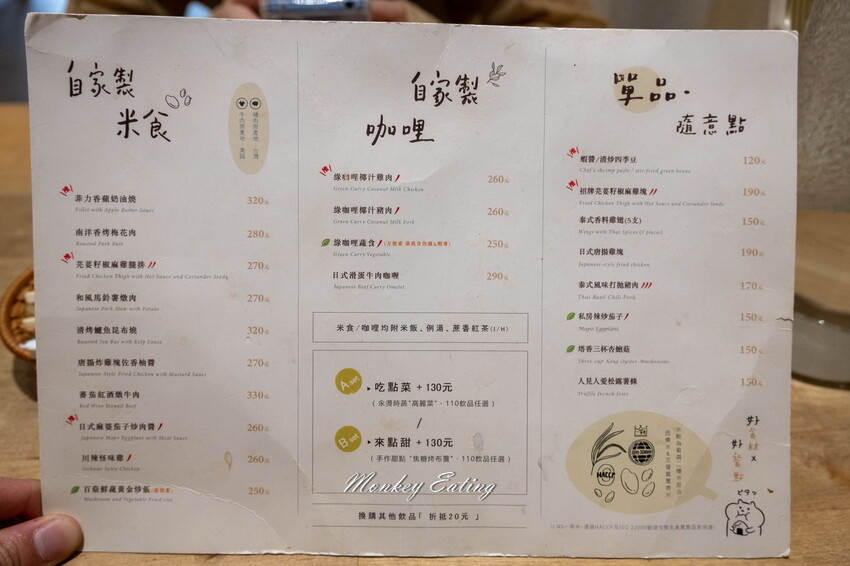 自家製
米食
豬肉原產地:台灣
牛肉原產地:美國
菲力香蘋奶油燒 320元
Fillet with Apple Butter Sauce
南洋香烤梅花肉 280元
Roasted Pork Butt
推
芫荽籽椒麻雞腿排 270元
Fried Chicken Thigh with Hot Sauce and Coriander Seeds
和風馬鈴薯燉肉 270元
Japanese Pork Stew with Potato
清烤鱸魚昆布燒 320元
Roasted Sea Bas with Kelp Sauce
唐揚炸雞塊佐香柚醬 270元
Japanese-Style Fried Chicken with Mustard Sauce
蕃茄紅酒燉牛肉 330元
Red Wine Stewed Beef
推
日式麻婆茄子炒肉醬 260元
Japanese Mapo Eggplant with Meat Sauce
川辣怪味雞 260元
Sichuan Spicy Chicken
百菇鮮蔬黃金炒飯 250元
Mushroom and Vegetable Fried rice
自家製
咖哩
推
綠咖哩椰汁雞肉 260元
Green Curry Coconut Milk Chicken
綠咖哩椰汁豬肉 260元
Green Curry Coconut Milk Pork
綠咖哩蔬食 250元
Green Curry Vegetable
日式滑蛋牛肉咖哩 290元
Japanese Beef Curry Omelet
米食/咖哩均附米飯、例湯、蔗香紅茶(I/H)
A set ▸ 吃點菜 + 130元
( 永溏時蔬"高麗菜"、110飲品任選 )
/
B set ▸ 來點甜 + 130元
( 手作甜點 "焦糖烤布蕾"、110飲品任選 )
Monkey Eating
換購其他飲品「 折抵20元 」
單品·
隨意點
推
蝦醬/清炒四季豆 120元
Chef's shrimp paste / stir-fried green beans
推
招牌芫荽籽椒麻雞塊 190元
Fried Chicken Thigh with Hot Sauce and Coriander Seeds
泰式香料雞翅(5支) 150元
Wings with Thai Spices (5 pieces)
日式唐揚雞塊 190元
Japanese-style fried chicken
泰式風味打拋豬肉 170元
Thai Basil Chili Pork
私房辣炒茄子 150元
Mapo Eggplant
塔香三杯杏鮑菇 150元
Three-cup King Oyster Mushrooms
人見人愛松露薯條 150元
Truffle french fries
HACCP
好食材 x
好餐點
ピタッ